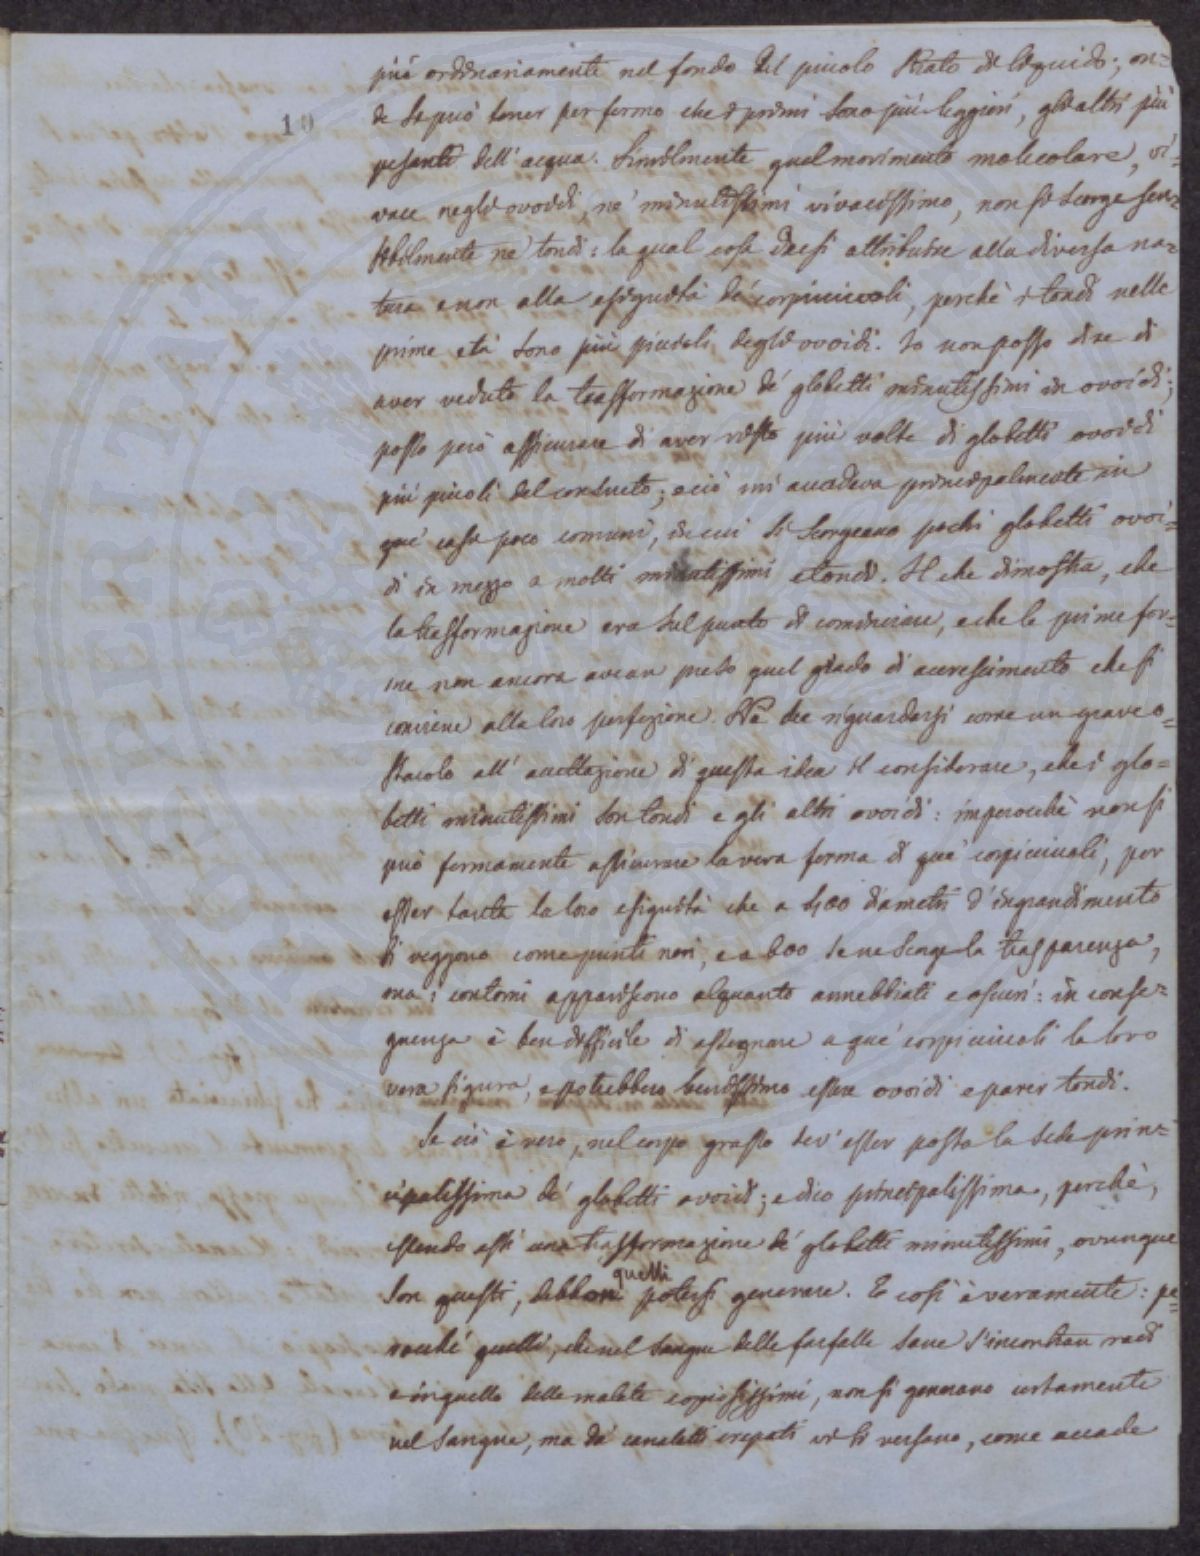 10
più ordinariamente nel fondo del piccolo strato di liquido; on=
de si può tener per fermo che i primi sono più leggieri, gli altri più
pesanti dell'acqua. Similmente quel movimento molecolare, vi=
vace negli ovoidi, ne' minutissimi vivacissimo, non si scorge sen=
sibilmente ne' tondi: la qual cosa deesi attribuire alla diversa na=
tura e non alla esiguità de' corpiciuoli, perchè i tondi nelle
prime età sono più piccoli degli ovoidi. Io non posso dire di
aver veduto la trasformazione de' globetti minutissimi in ovoidi;
posso però assicurare di aver visto più volte di globetti ovoidi
più piccoli del consueto; e ciò mi accadeva principalmente in
que' casi poco comuni, in cui si scorgeano pochi globetti ovoi=
di in mezzo a molti minutissimi e tondi. Il che dimostra, che
la trasformazione era sul punto di cominciare, e che le prime for=
me non ancora avean preso quel grado di accrescimento che si
conviene alla loro perfezione. Nè dee riguardarsi come un grave o=
stacolo all'accettazione di questa idea il considerare, che i glo=
betti minutissimi son tondi e gli altri ovoidi: imperocchè non si
può fermamente assicurare la vera forma di que' corpicciuoli, per
esser tanta la loro esiguità che a 400 diametri d'ingrandimento
si veggono come punti neri, e a 600 se ne scorge la trasparenza,
ma i contorni appariscono alquanto annebbiati e oscuri: in conse=
guenza è ben difficile di assegnare a que' corpicciuoli la loro
vera figura, e potrebbero benissimo essere ovoidi e parer tondi.
Se ciò è vero, nel corpo grasso dev'esser posta la sede prin=
cipalissima de' globetti ovoidi; e dico principalissima, perchè,
essendo essi una trasformazione de' globetti minutissimi, ovunque
son questi, debbon quelli potersi generare. E così è veramente: pe=
rocchè quelli, che nel sangue delle farfalle sane s'incontran radi
e in quello delle malate copiosissimi, non si generano certamente
nel sangue, ma da' canaletti crepati vi si versano, come accade